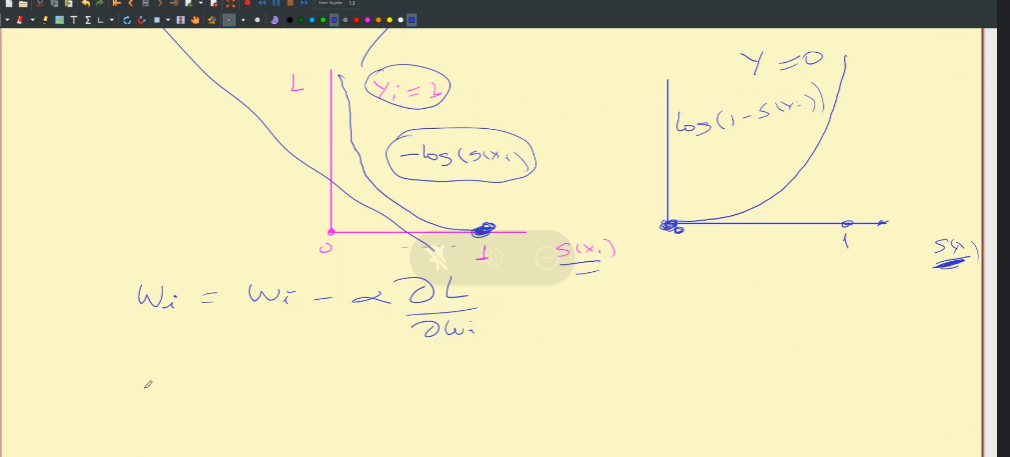 L
yᵢ = 1
-log(s(xᵢ)
0
1
s(xᵢ)
Y = 0
log(1 - s(xᵢ))
0
1
s(x)
wᵢ = wᵢ - α ∂L/∂wᵢ